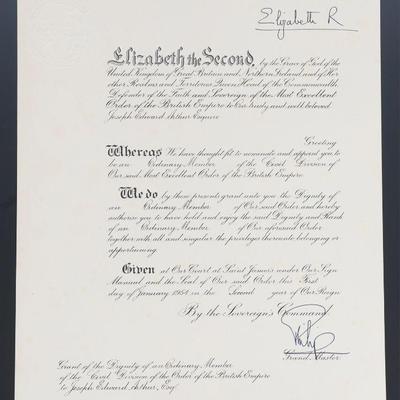 Elizabeth R
Elizabeth the Second, by the Grace of God of the
United Kingdom of Great Britain and Northern Ireland and of Her
other Realms and Territories Queen Head of the Commonwealth,
Defender of the Faith and Sovereign of the Most Excellent
Order of the British Empire to Our trusty and well beloved
Joseph Edward Arthur Esquire
Greeting
Whereas We have thought fit to nominate and appoint you to
be an Ordinary Member of the Civil Division of
Our said Most Excellent Order of the British Empire
We do by these presents grant unto you the Dignity of
an Ordinary Member of Our said Order and hereby
authorise you to have hold and enjoy the said Dignity and Rank
of an Ordinary Member of Our aforesaid Order
together with all and singular the privileges thereunto belonging or
appertaining.
Given at Our Court at Saint James's under Our Sign
Manual and the Seal of Our said Order this First
day of January 1954 in the Second year of Our Reign
By the Sovereign's Command
Philip
Grand Master
Grant of the Dignity of an Ordinary Member
of the Civil Division of the Order of the British Empire
to Joseph Edward Arthur, Esq.